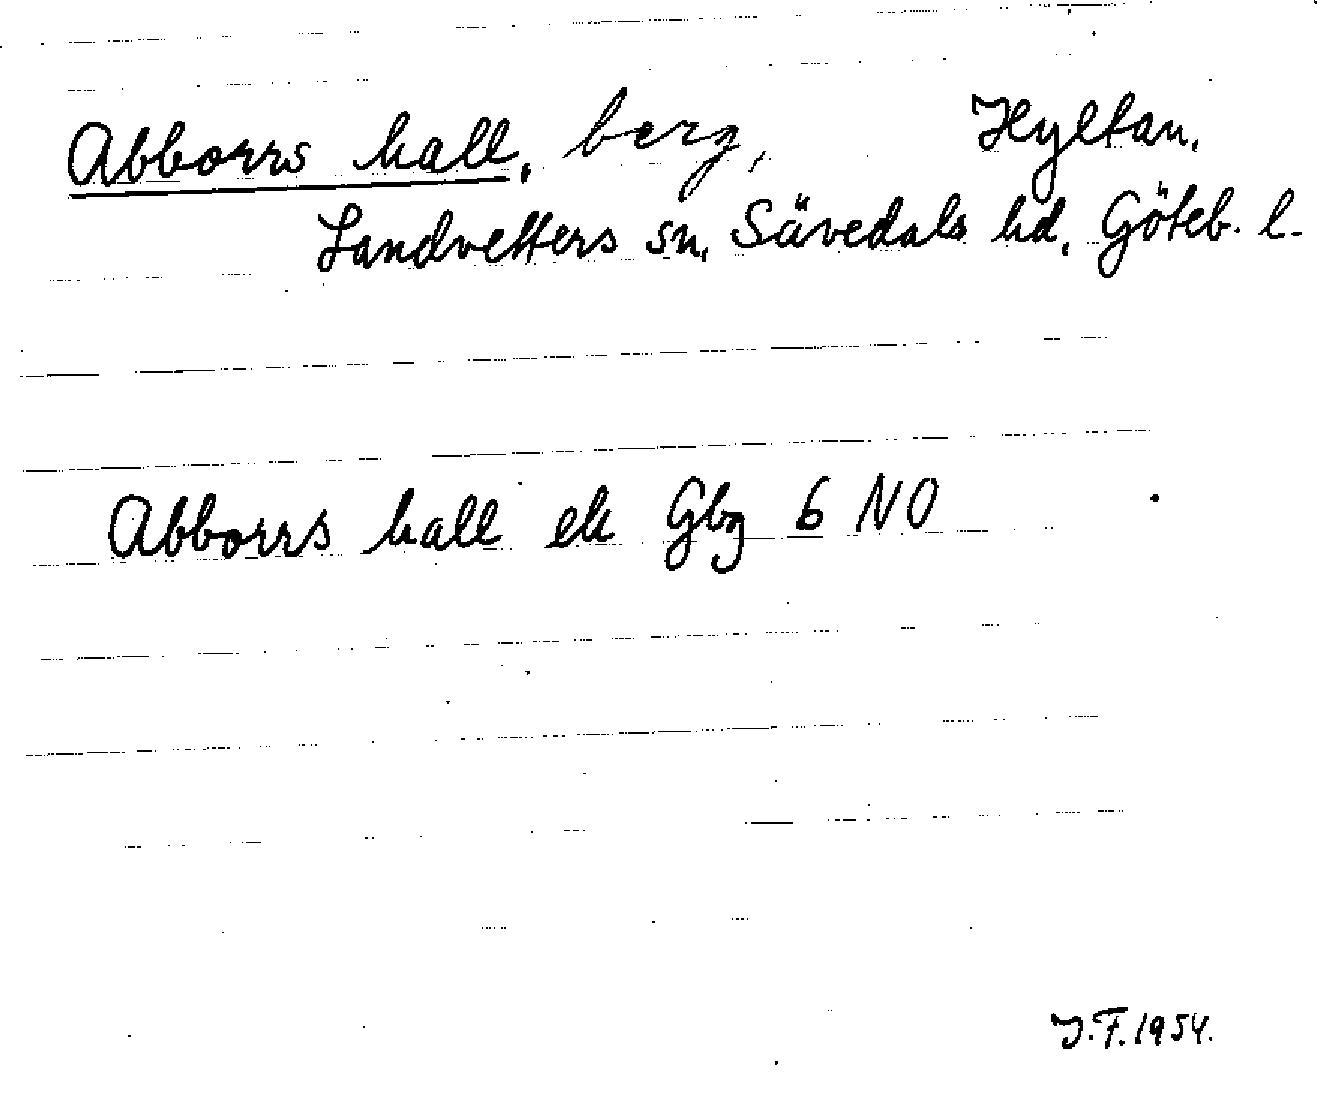 Abborrs hall, berg, Hyltan.
Landvetters sn, Sävedals hd, Göteb. l.
Abborrs hall ek Gbg 6 NO
J.F. 1954.